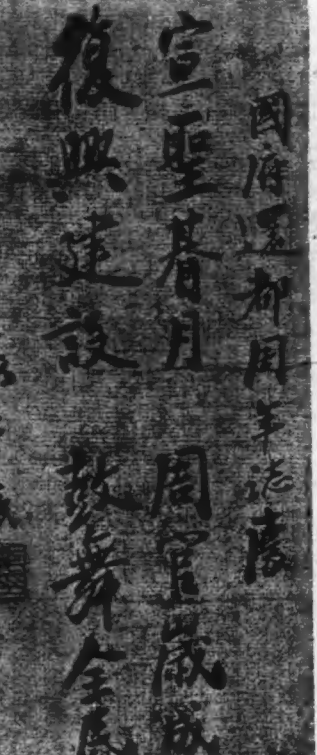 國府還都周年誌慶
宣聖朞月 周官歲
復興建設 鼓舞全民